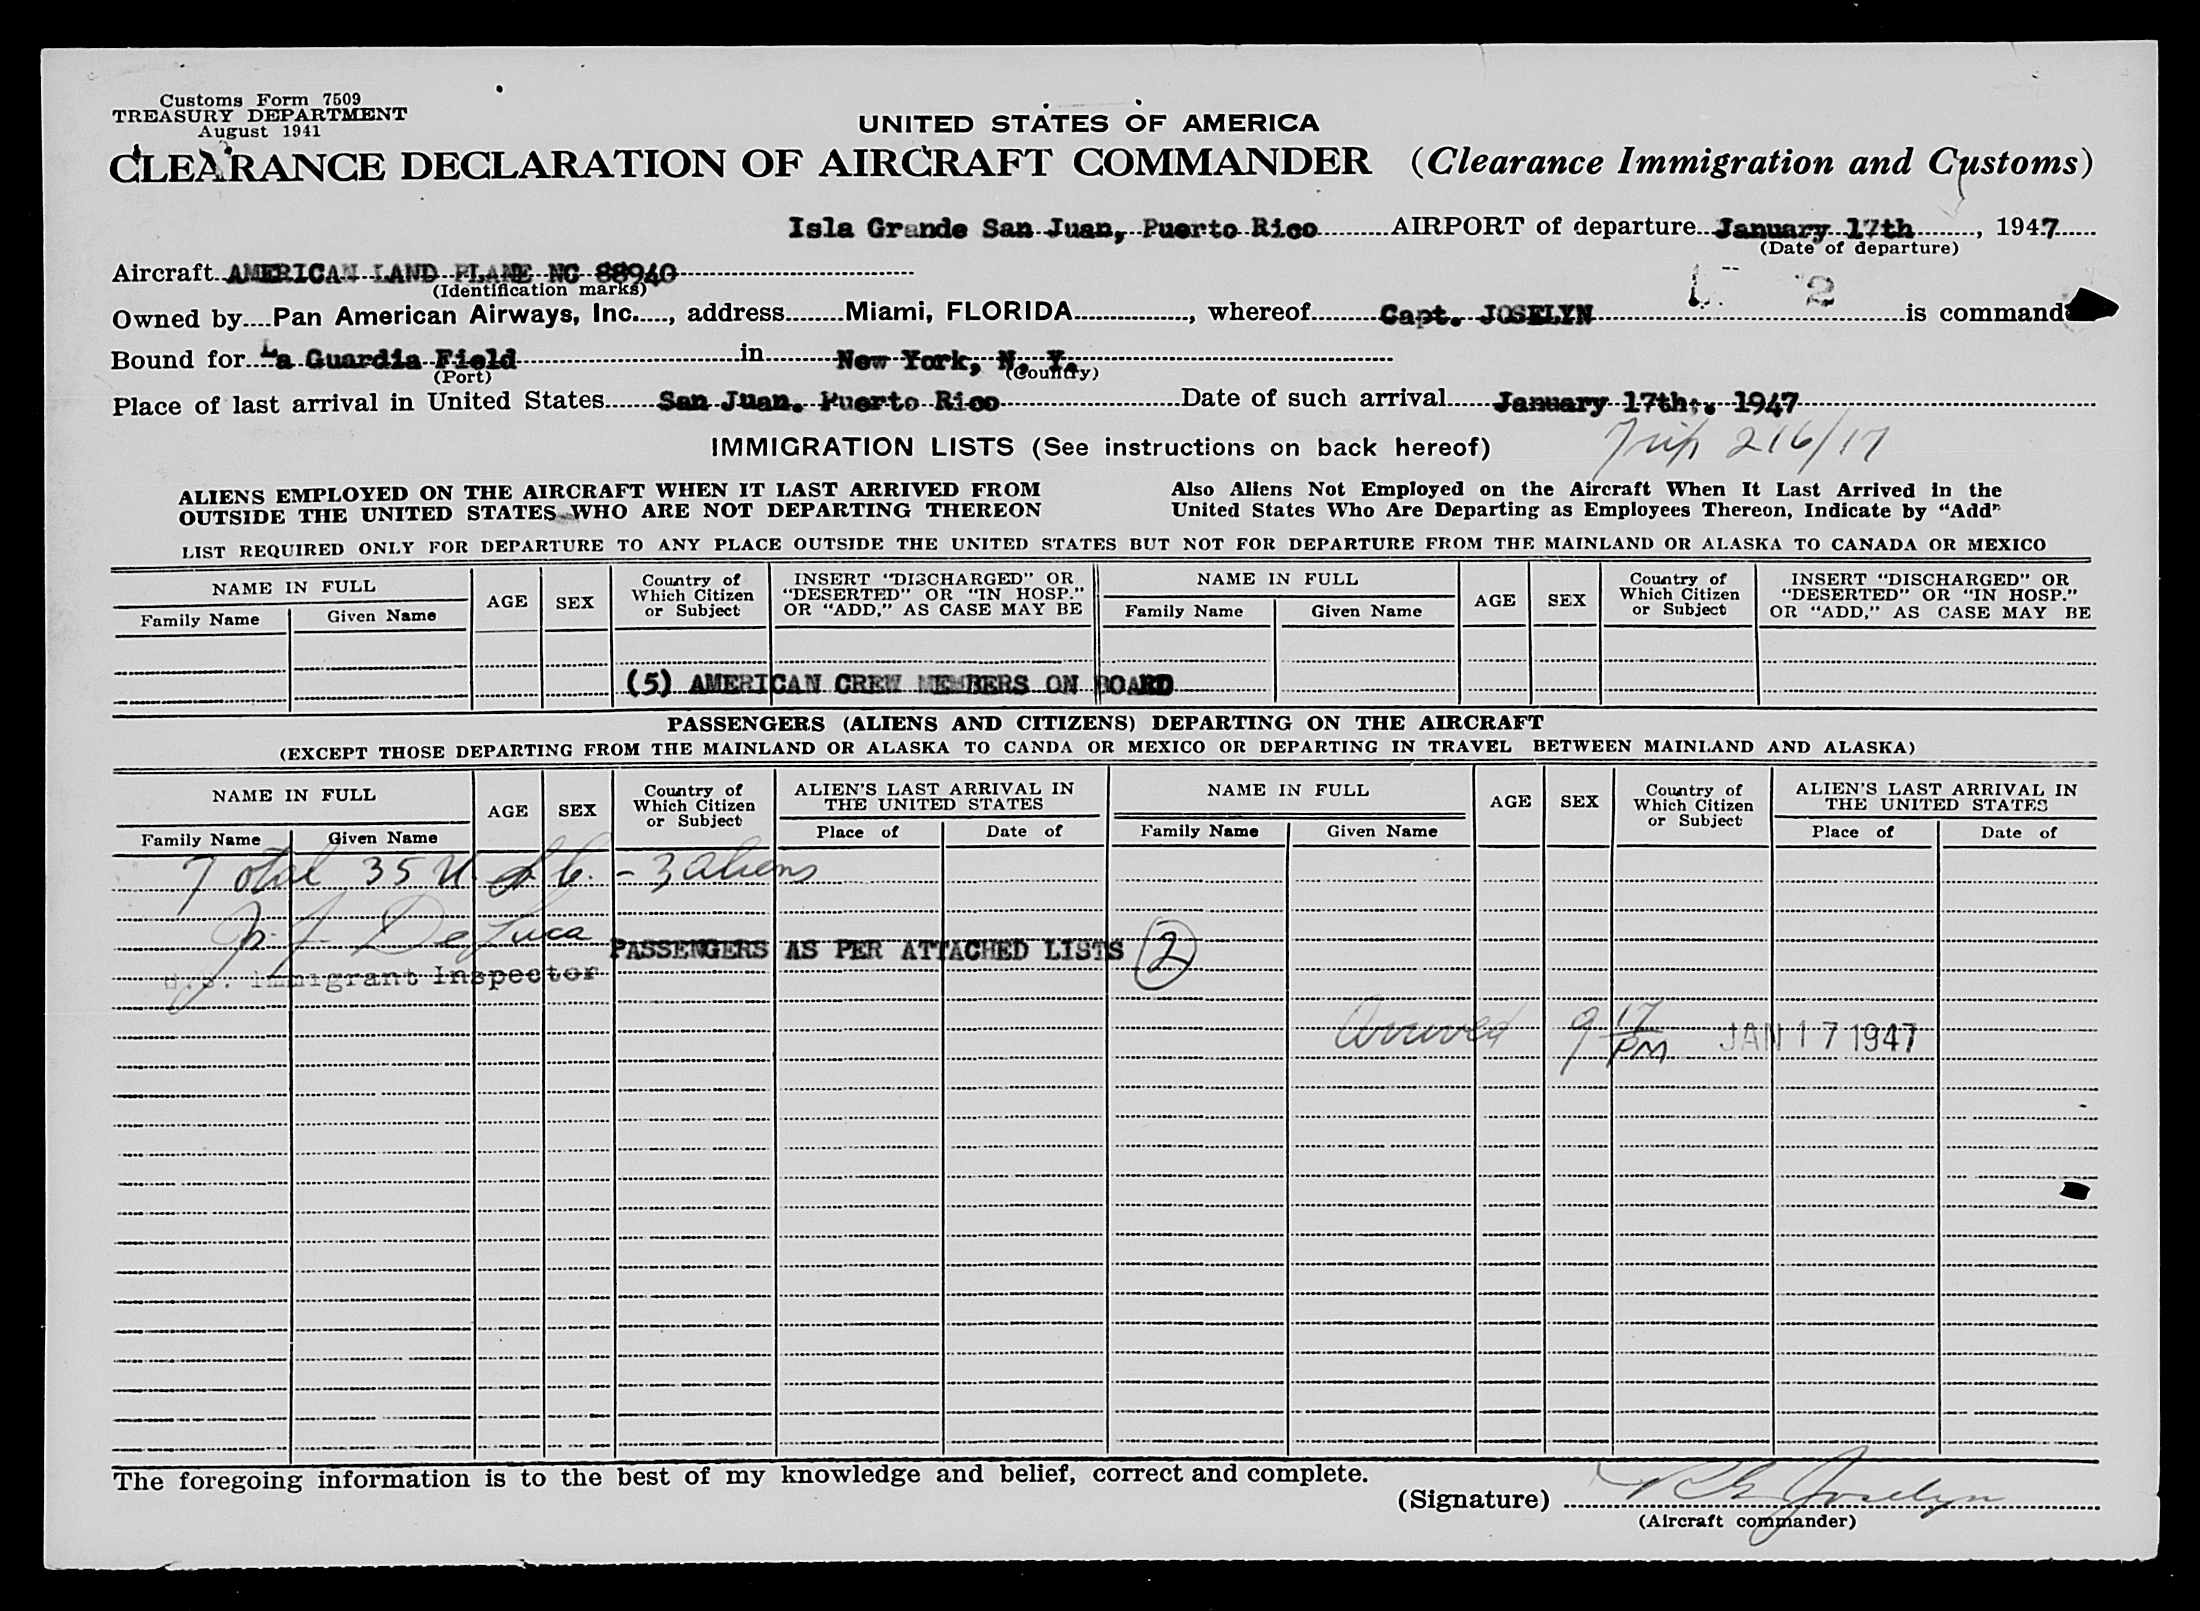 Customs Form 7509
TREASURY DEPARTMENT
August 1941
UNITED STATES OF AMERICA
CLEARANCE DECLARATION OF AIRCRAFT COMMANDER (Clearance Immigration and Customs)
Isla Grande San Juan, Puerto Rico AIRPORT of departure January 17th, 1947
(Date of departure)
Aircraft AMERICAN LAND PLANE NC 88940
(Identification marks)
2
Owned by Pan American Airways, Inc., address Miami, FLORIDA, whereof Capt. JOSELYN is command
Bound for La Guardia Field in New York, N. Y.
(Port) (Country)
Place of last arrival in United States San Juan. Puerto Rico Date of such arrival January 17th, 1947
IMMIGRATION LISTS (See instructions on back hereof) Trip 216/17
ALIENS EMPLOYED ON THE AIRCRAFT WHEN IT LAST ARRIVED FROM
OUTSIDE THE UNITED STATES WHO ARE NOT DEPARTING THEREON
Also Aliens Not Employed on the Aircraft When It Last Arrived in the
United States Who Are Departing as Employees Thereon, Indicate by "Add"
LIST REQUIRED ONLY FOR DEPARTURE TO ANY PLACE OUTSIDE THE UNITED STATES BUT NOT FOR DEPARTURE FROM THE MAINLAND OR ALASKA TO CANADA OR MEXICO
NAME IN FULL
Family Name Given Name
AGE
SEX
Country of
Which Citizen
or Subject
INSERT "DISCHARGED" OR
"DESERTED" OR "IN HOSP."
OR "ADD," AS CASE MAY BE
NAME IN FULL
Family Name Given Name
AGE
SEX
Country of
Which Citizen
or Subject
INSERT "DISCHARGED" OR
"DESERTED" OR "IN HOSP."
OR "ADD," AS CASE MAY BE
(5) AMERICAN CREW MEMBERS ON BOARD
PASSENGERS (ALIENS AND CITIZENS) DEPARTING ON THE AIRCRAFT
(EXCEPT THOSE DEPARTING FROM THE MAINLAND OR ALASKA TO CANDA OR MEXICO OR DEPARTING IN TRAVEL BETWEEN MAINLAND AND ALASKA)
NAME IN FULL
Family Name Given Name
AGE
SEX
Country of
Which Citizen
or Subject
ALIEN'S LAST ARRIVAL IN
THE UNITED STATES
Place of Date of
NAME IN FULL
Family Name Given Name
AGE
SEX
Country of
Which Citizen
or Subject
ALIEN'S LAST ARRIVAL IN
THE UNITED STATES
Place of Date of
Total 35 U.S.C. - 3 Aliens
De Luca
PASSENGERS AS PER ATTACHED LISTS 2
U.S. Immigrant Inspector
Arrived 9 17 PM JAN 17 1947
The foregoing information is to the best of my knowledge and belief, correct and complete.
(Signature) Joselyn
(Aircraft commander)